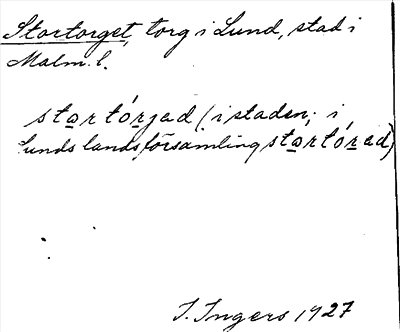 Stortorget, torg i Lund, stad i
Malm. l.
startórjad (i staden; i
Lunds landsförsamling startórad)
I. Ingers 1927